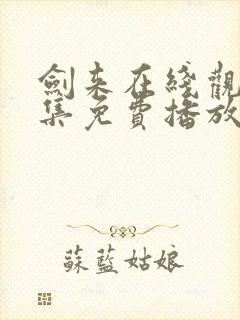 劍來在綫觀
集免費播放
蘇藍姑娘